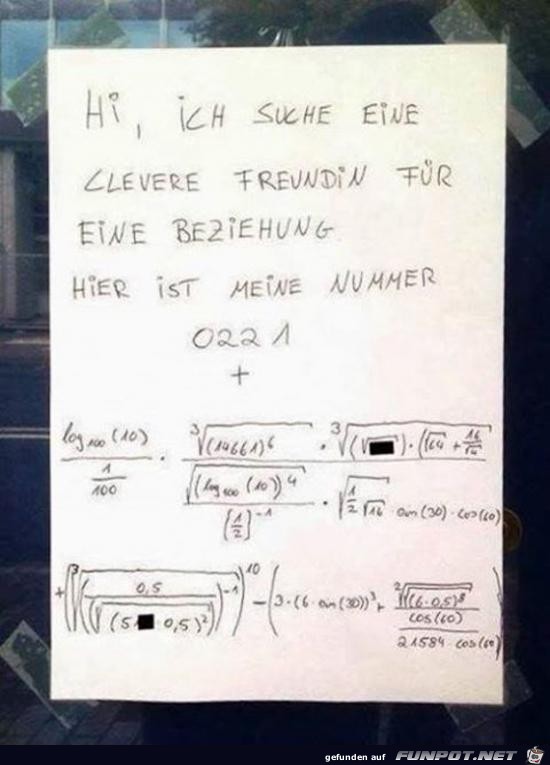 Hi, ich suche eine
clevere Freundin für
eine Beziehung
Hier ist meine Nummer
0221
+
log₁₀₀(10) / (1/100) · ³√(14661)⁶ · ³√((√██)·(√64 + 16/√4)) / √(log₁₀₀(10))⁴ / [1/2]⁻¹ · √(1/2 √16) · sin(30) · cos(60)
+ (³√((0,5 / (√(5██0,5)²))⁻¹))¹⁰ − (3·(6·sin(30))³ + ²√((6·0,5)⁸ / cos(60) / 21584·cos(60)
gefunden auf FUNPOT.NET